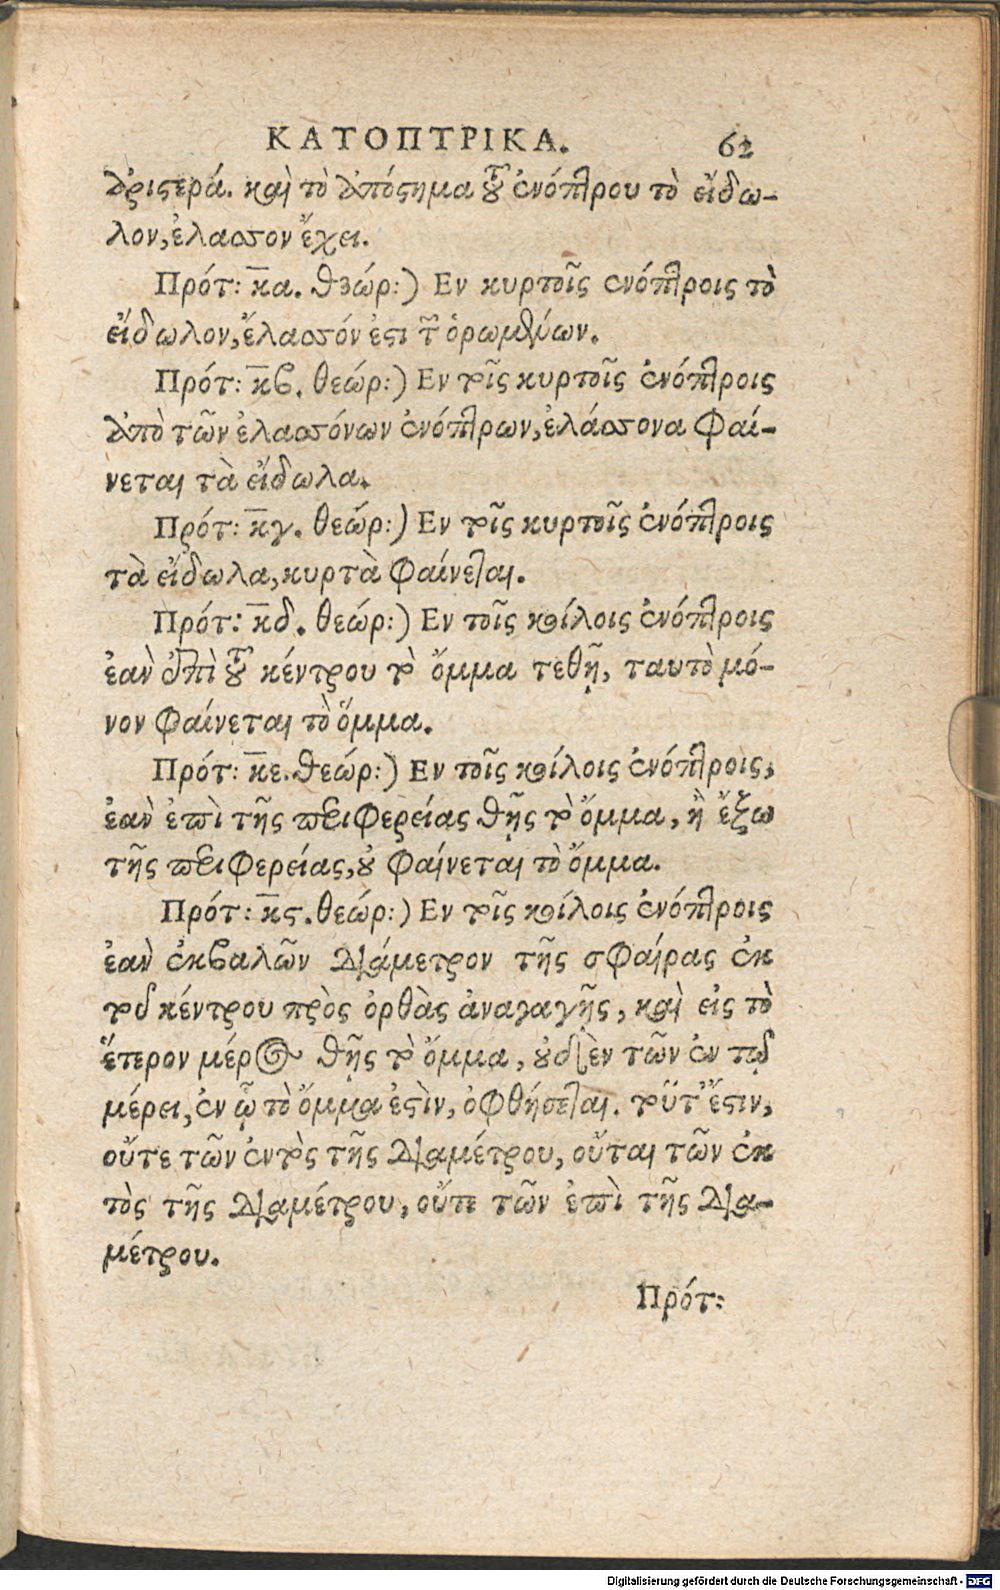 ΚΑΤΟΠΤΡΙΚΑ. 62
ἀριστερά. καὶ τὸ ἀπόστημα τοῦ ἐνόπτρου τὸ εἴδω-
λον, ἐλασσον ἔχει.
Πρότ: κα. θεώρ:) Εν κυρτοῖς ἐνόπτροις τὸ
εἴδωλον, ἔλασσόν ἐστι τῶν ὁρωμένων.
Πρότ: κβ. θεώρ:) Εν τοῖς κυρτοῖς ἐνόπτροις
ἀπὸ τῶν ἐλασσόνων ἐνόπτρων, ἐλάσσονα φαί-
νεται τὰ εἴδωλα.
Πρότ: κγ. θεώρ:) Εν τοῖς κυρτοῖς ἐνόπτροις
τὰ εἴδωλα, κυρτὰ φαίνεται.
Πρότ: κδ. θεώρ:) Εν τοῖς κοίλοις ἐνόπτροις
ἐαν ἐπὶ τοῦ κέντρου τὸ ὄμμα τεθῇ, ταυτὸ μό-
νον φαίνεται τὸ ὄμμα.
Πρότ: κε. θεώρ:) Εν τοῖς κοίλοις ἐνόπτροις,
ἐαν ἐπὶ τῆς περιφερείας θῇς τὸ ὄμμα, ἢ ἔξω
τῆς περιφερείας, οὐ φαίνεται τὸ ὄμμα.
Πρότ: κϛ. θεώρ:) Εν τοῖς κοίλοις ἐνόπτροις
ἐαν ἐκβαλῶν διάμετρον τῆς σφαίρας ἐκ
τοῦ κέντρου πρὸς ὀρθὰς ἀναγαγῇς, καὶ εἰς τὸ
ἕτερον μέρος θῇς τὸ ὄμμα, οὐδὲν τῶν ἐν τῷ
μέρει, ἐν ᾧ τὸ ὄμμα ἐστὶν, ὀφθήσεται. τοῦτ' ἔστιν,
οὔτε τῶν ἐντὸς τῆς διαμέτρου, οὔται τῶν ἐκ
τὸς τῆς διαμέτρου, οὔτε τῶν ἐπὶ τῆς δια-
μέτρου.
Πρότ:
Digitalisierung gefördert durch die Deutsche Forschungsgemeinschaft - DFG